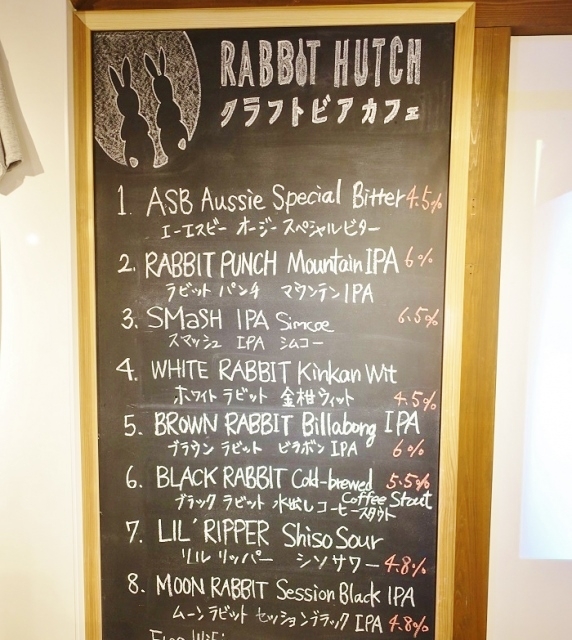 RABBIT HUTCH
クラフトビアカフェ
1. ASB Aussie Special Bitter 4.5%
エーエスビー オージー スペシャルビター
2. RABBIT PUNCH Mountain IPA 6%
ラビット パンチ マウンテン IPA
3. SMaSH IPA Simcoe 6.5%
スマッシュ IPA シムコー
4. WHITE RABBIT Kinkan Wit
ホワイト ラビット 金柑 ウィット 4.5%
5. BROWN RABBIT Billabong IPA
ブラウン ラビット ビラボン IPA 6%
6. BLACK RABBIT Cold-brewed 5.5%
Coffee Stout
ブラック ラビット 水出し コーヒースタウト
7. LIL' RIPPER Shiso Sour
リル リッパー シソサワー 4.8%
8. MOON RABBIT Session Black IPA
ムーン ラビット セッションブラック IPA 4.8%